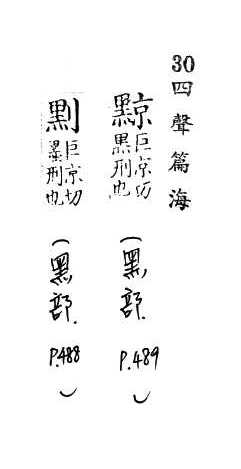 30四聲篇海
黥巨京切黑刑也（黑部.P.489）
剠巨京切墨刑也（黑部.P.488）